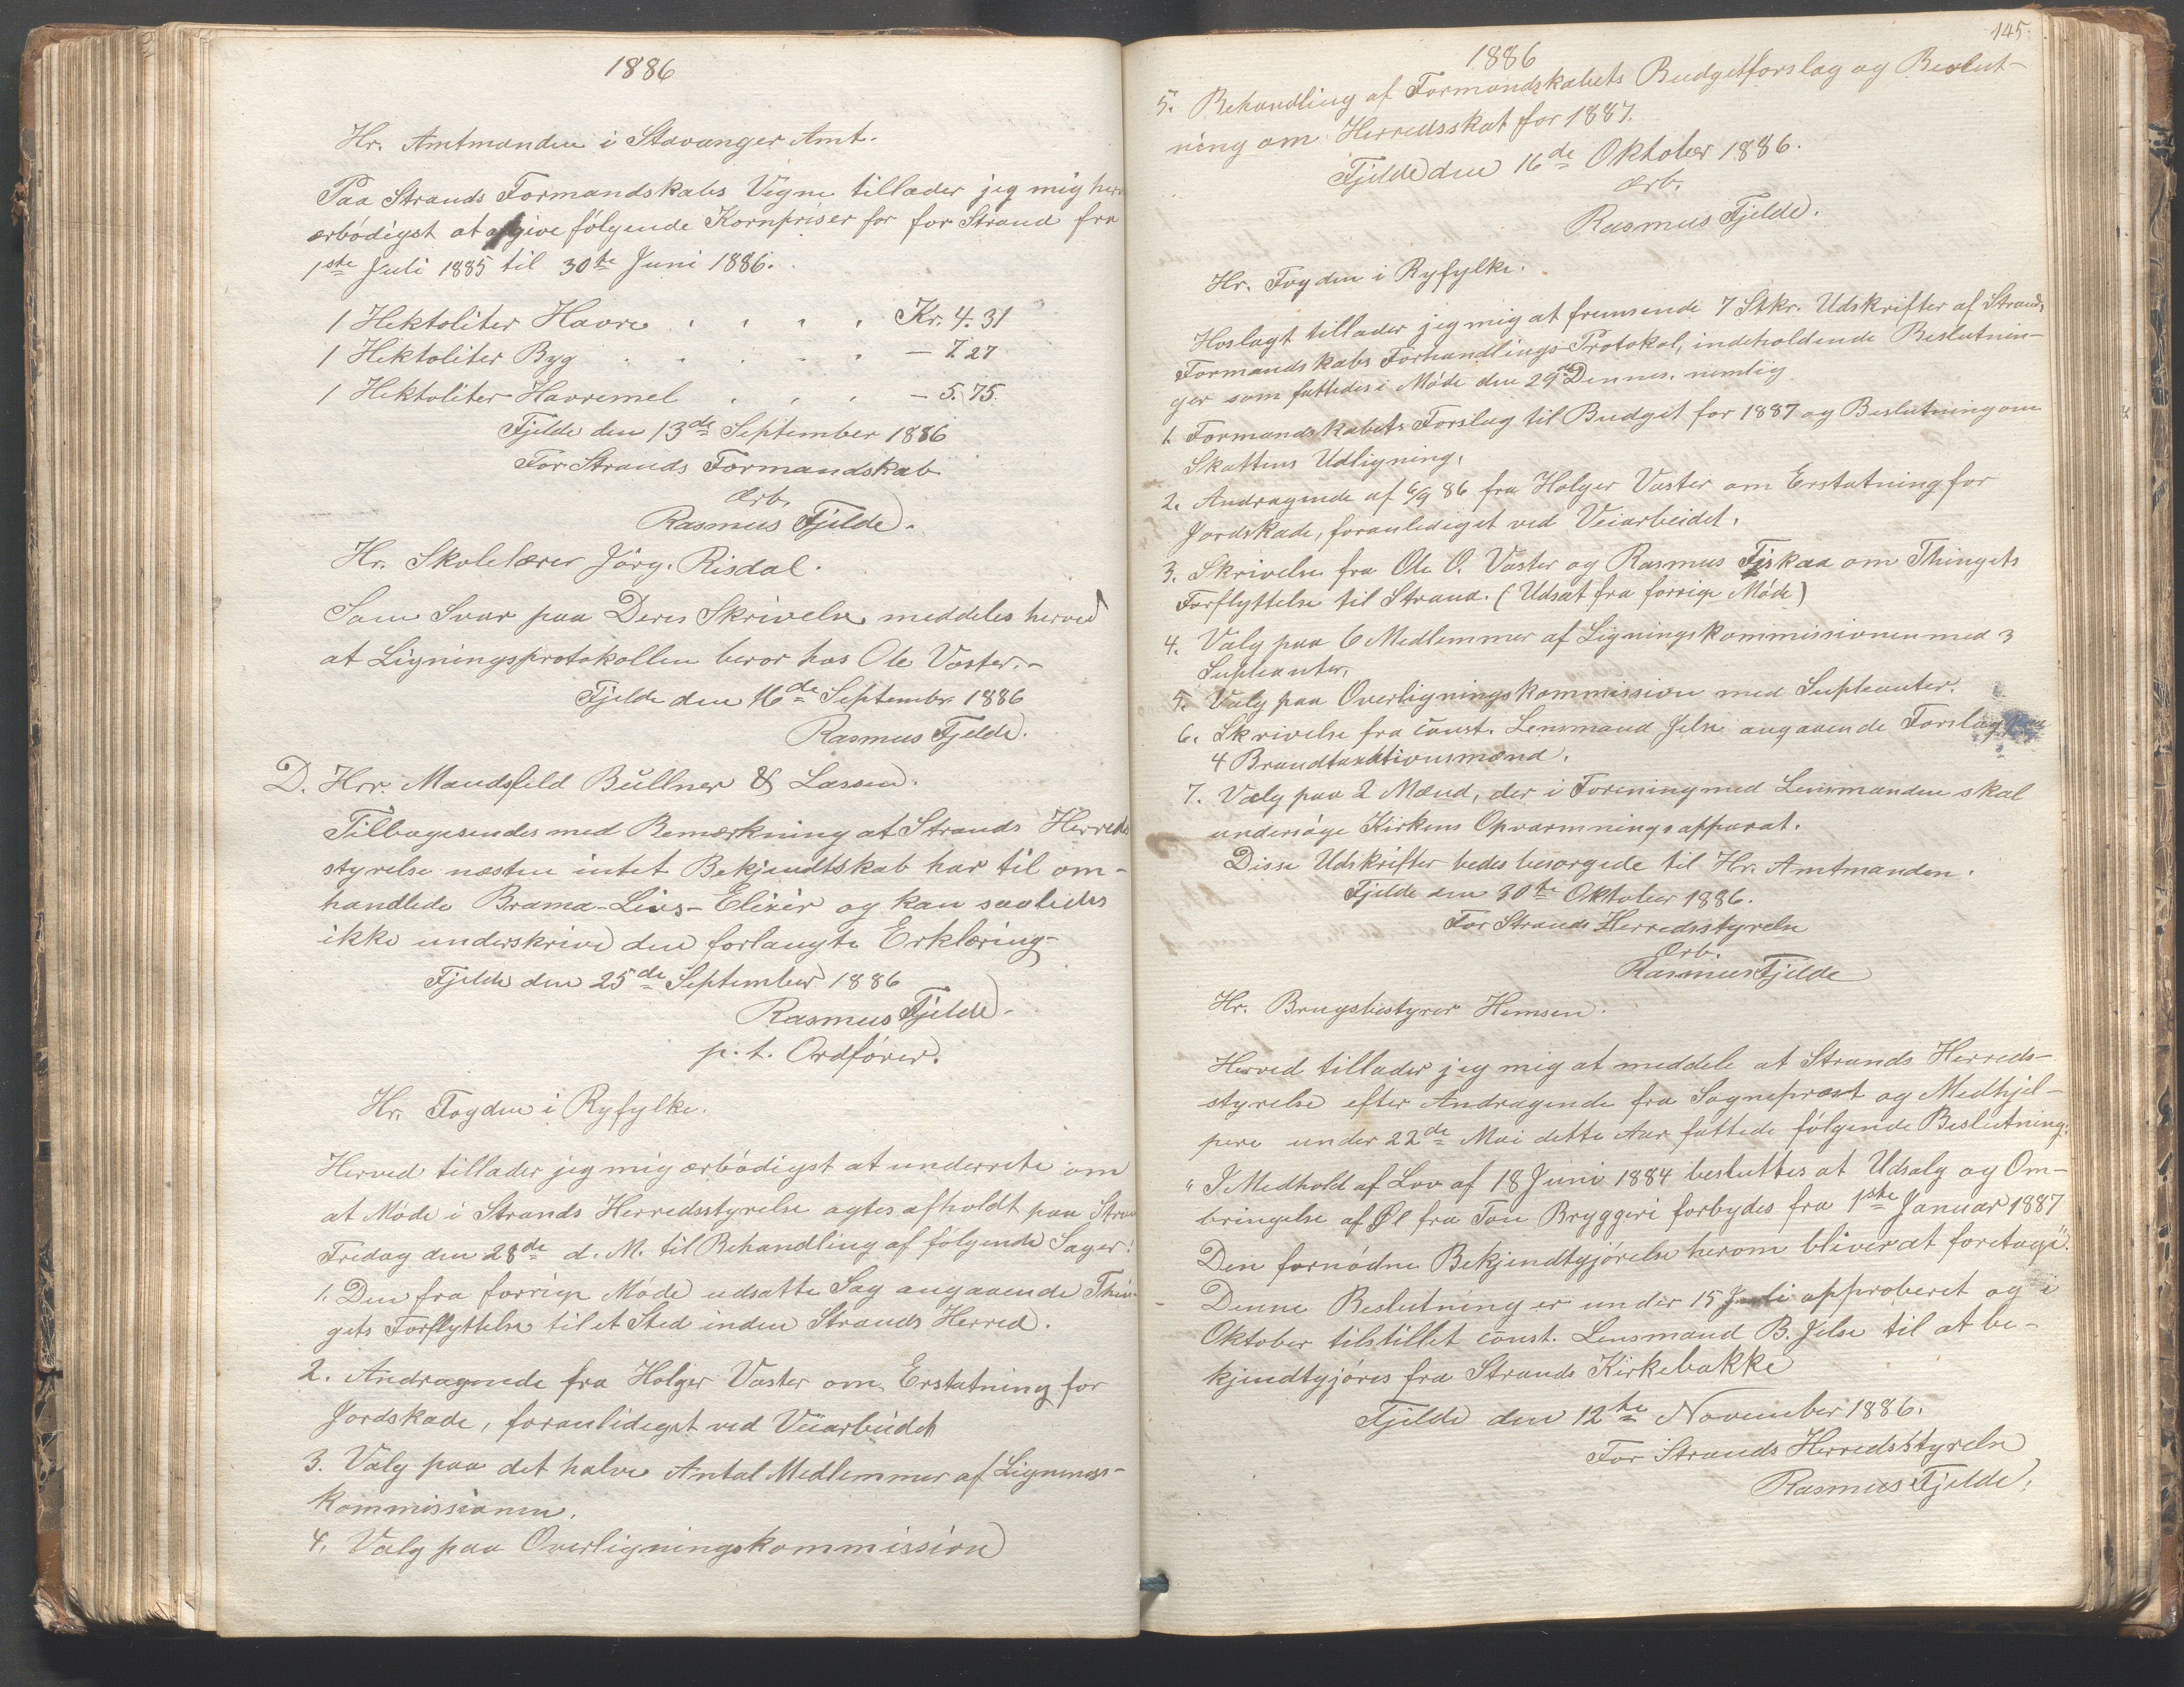 1886
Hr. Amtmanden i Stavanger Amt.
Paa Strands Formandskabs Vegne tillader jeg mig her
ærbödigst at afgive fölgende Kornpriser for for Strand fra
1ste Juli 1885 til 30te Juni 1886.
1 Hektoliter Havre . . . . Kr. 4.31
1 Hektoliter Byg . . . . . — 7.27
1 Hektoliter Havremel . . . — 5.75.
Fjelde den 13de September 1886
For Strands Formandskab
Ærb.
Rasmus Fjelde.
Hr. Skolelærer Jörg. Risdal.
Som Svar paa Deres Skrivelse meddeles herved
at Ligningsprotokollen beror hos Ole Vaster.-
Fjelde den 16de Septembr. 1886
Rasmus Fjelde.
D. Hrr. Mandsfeld Büllner & Lassen.
Tilbagesendes med Bemærkning at Strands Herreds
styrelse næsten intet Bekjendtskab har til om-
handlede Brama-Livs-Elixir og kan saaledes
ikke underskrive den forlangte Erklæring-
Fjelde den 25de September 1886
Rasmus Fjelde.
p. t. Ordförer.
Hr. Fogden i Ryfylke.
Herved tillader jeg mig ærbödigst at underrete om
at Möde i Strands Herredsstyrelse agtes afholdt paa Stran
Fredag den 28de d. M. til Behandling af fölgende Sager:
1. Den fra forrige Möde udsatte Sag angaaende Thin-
gets Forflyttelse til et Sted inden Strands Herred.
2. Andragende fra Holger Vaster om Erstatning for
Jordskade, foranlediget ved Veiarbeidet
3. Valg paa det halve Antal Medlemmer af Lignings-
kommissionen.
4. Valg paa Overligningskommission
145.
1886
5. Behandling af Formandskabets Budgetforslag og Beslut-
ning om Herredsskat for 1887.
Fjelde den 16de Oktober 1886.
Ærb.
Rasmus Fjelde.
Hr. Fogden i Ryfylke.
Hoslagt tillader jeg mig at fremsende 7 Stkr. Udskrifter af Strands
Formandskabs Forhandlings-Protokol, indeholdende Beslutnin-
ger som fattedes i Möde den 29de Dennes. nemlig
1. Formandskabets Forslag til Budget for 1887 og Beslutning om
Skattens Udligning.
2. Andragende af 6/9 86 fra Holger Vaster om Erstatning for
Jordskade, foranlediget ved Veiarbeidet.
3. Skrivelse fra Ole O. Vaster og Rasmus Fiskaa om Thingets
Forflyttelse til Strand. (Udsat fra forrige Möde)
4. Valg paa 6 Medlemmer af Ligningskommissionen med 3
Supleanter.
5. Valg paa Overligningskommission med Supleanter.
6. Skrivelse fra const. Lensmand Jelse angaaende Forslag paa
4 Brandtaxationsmænd.
7. Valg paa 2 Mænd, der i Forening med Lensmanden skal
undersöge Kirkens Opvarmningsapparat.
Disse Udskrifter bedes besorgede til Hr. Amtmanden.
Fjelde den 30te Oktober 1886.
For Strands Herredsstyrelse
Ærb.
Rasmus Fjelde
Hr. Brugsbestyrer Hemsen.
Herved tillader jeg mig at meddele at Strands Herreds-
styrelse efter Andragende fra Sognepræst og Medhjel-
pere under 22de Mai dette Aar fattede fölgende Beslutning:
"I Medhold af Lov af 18 Juni 1884 besluttes at Udsalg og Om-
bringelse af Øl fra Tou Bryggeri forbydes fra 1ste Januar 1887
Den fornödne Bekjendtgjörelse herom bliver at foretage".
Denne Beslutning er under 15 Juli approberet og i
Oktober tilstillet const. Lensmand B. Jelse til at be-
kjendtgjöres fra Strands Kirkebakke
Fjelde den 12te November 1886.
For Strands Herredsstyrelse
Rasmus Fjelde.